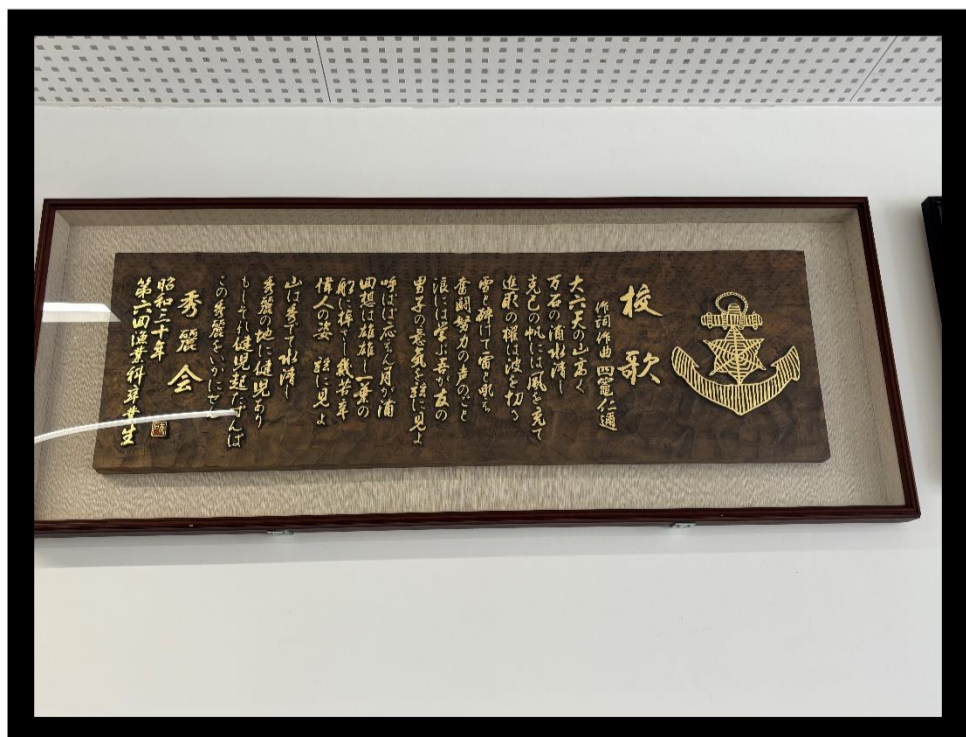 校歌
作詞作曲 四竈仁邇
大六天の山高く
万石の浦水清し
克己の帆には風を充て
進取の櫂は波を切る
雪と砕けて雷と
奮闘努力の声のごと
浪には学ぶ吾が友の
男子の意気を玆に見よ
呼ばば応えん月が浦
回想は雄雄し一葉の
船に棹さし幾苦辛
偉人の姿 玆に見よ
山は秀でて水清し
秀麗の地に健児あり
もしそれ健児起たずんば
この秀麗をいかにせん
秀麗会
昭和三十年
第六回漁業科卒業生